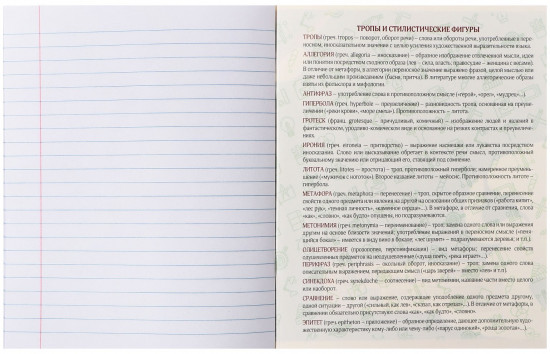 ТРОПЫ И СТИЛИСТИЧЕСКИЕ ФИГУРЫ
ТРОПЫ (греч. tropos – поворот, оборот речи) – слова или обороты речи, употребленные в пере-
носном, иносказательном значении с целью усиления художественной выразительности языка.
АЛЛЕГОРИЯ (греч. allegoria – иносказание) – образное изображение отвлеченной мысли, идеи
или понятия посредством сходного образа (лев – сила, власть; правосудие – женщина с весами).
В отличие от метафоры, в аллегории переносное значение выражено фразой, целой мыслью или
даже небольшим произведением (басня, притча). В литературе многие аллегорические образы
взяты из фольклора и мифологии.
АНТИФРАЗ – употребление слова в противоположном смысле («герой», «орел», «мудрец»...)
ГИПЕРБОЛА (греч. hyperbole – преувеличение) – разновидность тропа, основанная на преуве-
личении («реки крови», «море смеха»). Противоположность – литота.
ГРОТЕСК (франц. grotesque – причудливый, комичный) – изображение людей и явлений в
фантастическом, уродливо-комическом виде и основанное на резких контрастах и преувеличе-
ниях.
ИРОНИЯ (греч. eironeia – притворство) – выражение насмешки или лукавства посредством
иносказания. Слово или высказывание обретает в контексте речи смысл, противоположный
буквальному значению или отрицающий его, ставящий под сомнение.
ЛИТОТА (греч. litotes – простота) – троп, противоположный гиперболе; намеренное преумень-
шение («мужичок с ноготок»). Второе название литоты – мейосис. Противоположность литоте –
гипербола.
МЕТАФОРА (греч. metaphora – перенесение) – троп, скрытое образное сравнение, перенесение
свойств одного предмета или явления на другой на основании общих признаков («работа кипит»,
«лес рук», «темная личность», «каменное сердце»...). В метафоре, в отличие от сравнения, слова
«как», «словно», «как будто» опущены, но подразумеваются.
МЕТОНИМИЯ (греч. metonymia – переименование) – троп; замена одного слова или выражения
другим на основе близости значений; употребление выражений в переносном смысле («пеня-
щийся бокал» – имеется в виду вино в бокале; «лес шумит» – подразумеваются деревья; и т.п.).
ОЛИЦЕТВОРЕНИЕ (прозопопея, персонификация) – вид метафоры; перенесение свойств
одушевленных предметов на неодушевленные («душа поет», «река играет»...).
ПЕРИФРАЗ (греч. periphrasis – окольный оборот, иносказание) – троп; замена одного слова
описательным выражением, передающим смысл («царь зверей» – вместо «лев» и т.п.)
СИНЕКДОХА (греч. synekdoche – соотнесение) – вид метонимии, название части вместо целого
или наоборот.
СРАВНЕНИЕ – слово или выражение, содержащее уподобление одного предмета другому,
одной ситуации – другой («сильный, как лев», «сказал, как отрезал»...). В отличие от метафоры, в
сравнении обязательно присутствуют слова «как», «как будто», «словно».
ЭПИТЕТ (греч. epitheton – приложение) – образное определение, дающее дополнительную худо-
жественную характеристику кому-либо или чему-либо («парус одинокий», «роща золотая»...).